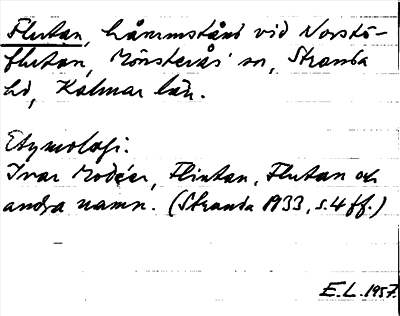 Flutan, håmmstånd vid Norstö-
flutan, Mönsterås sn, Stranda
hd, Kalmar län.
Etymologi:
Ivar Modéer, Flintan, Flutan och
andra namn. (Stranda 1933, s. 4 ff.)
E.L. 1957.